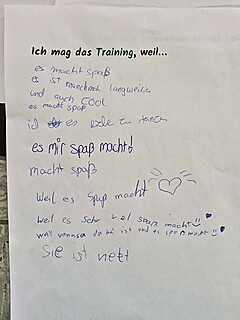 Ich mag das Training, weil...
es macht spaß
es ist manchmal langweilig
und auch COOL
es macht spaß
ich es liebe zu tanzen
es mir spaß macht!
macht spaß
weil es Spaß macht
weil es sehr viel spaß macht
ist und es spaß macht
Sie ist nett